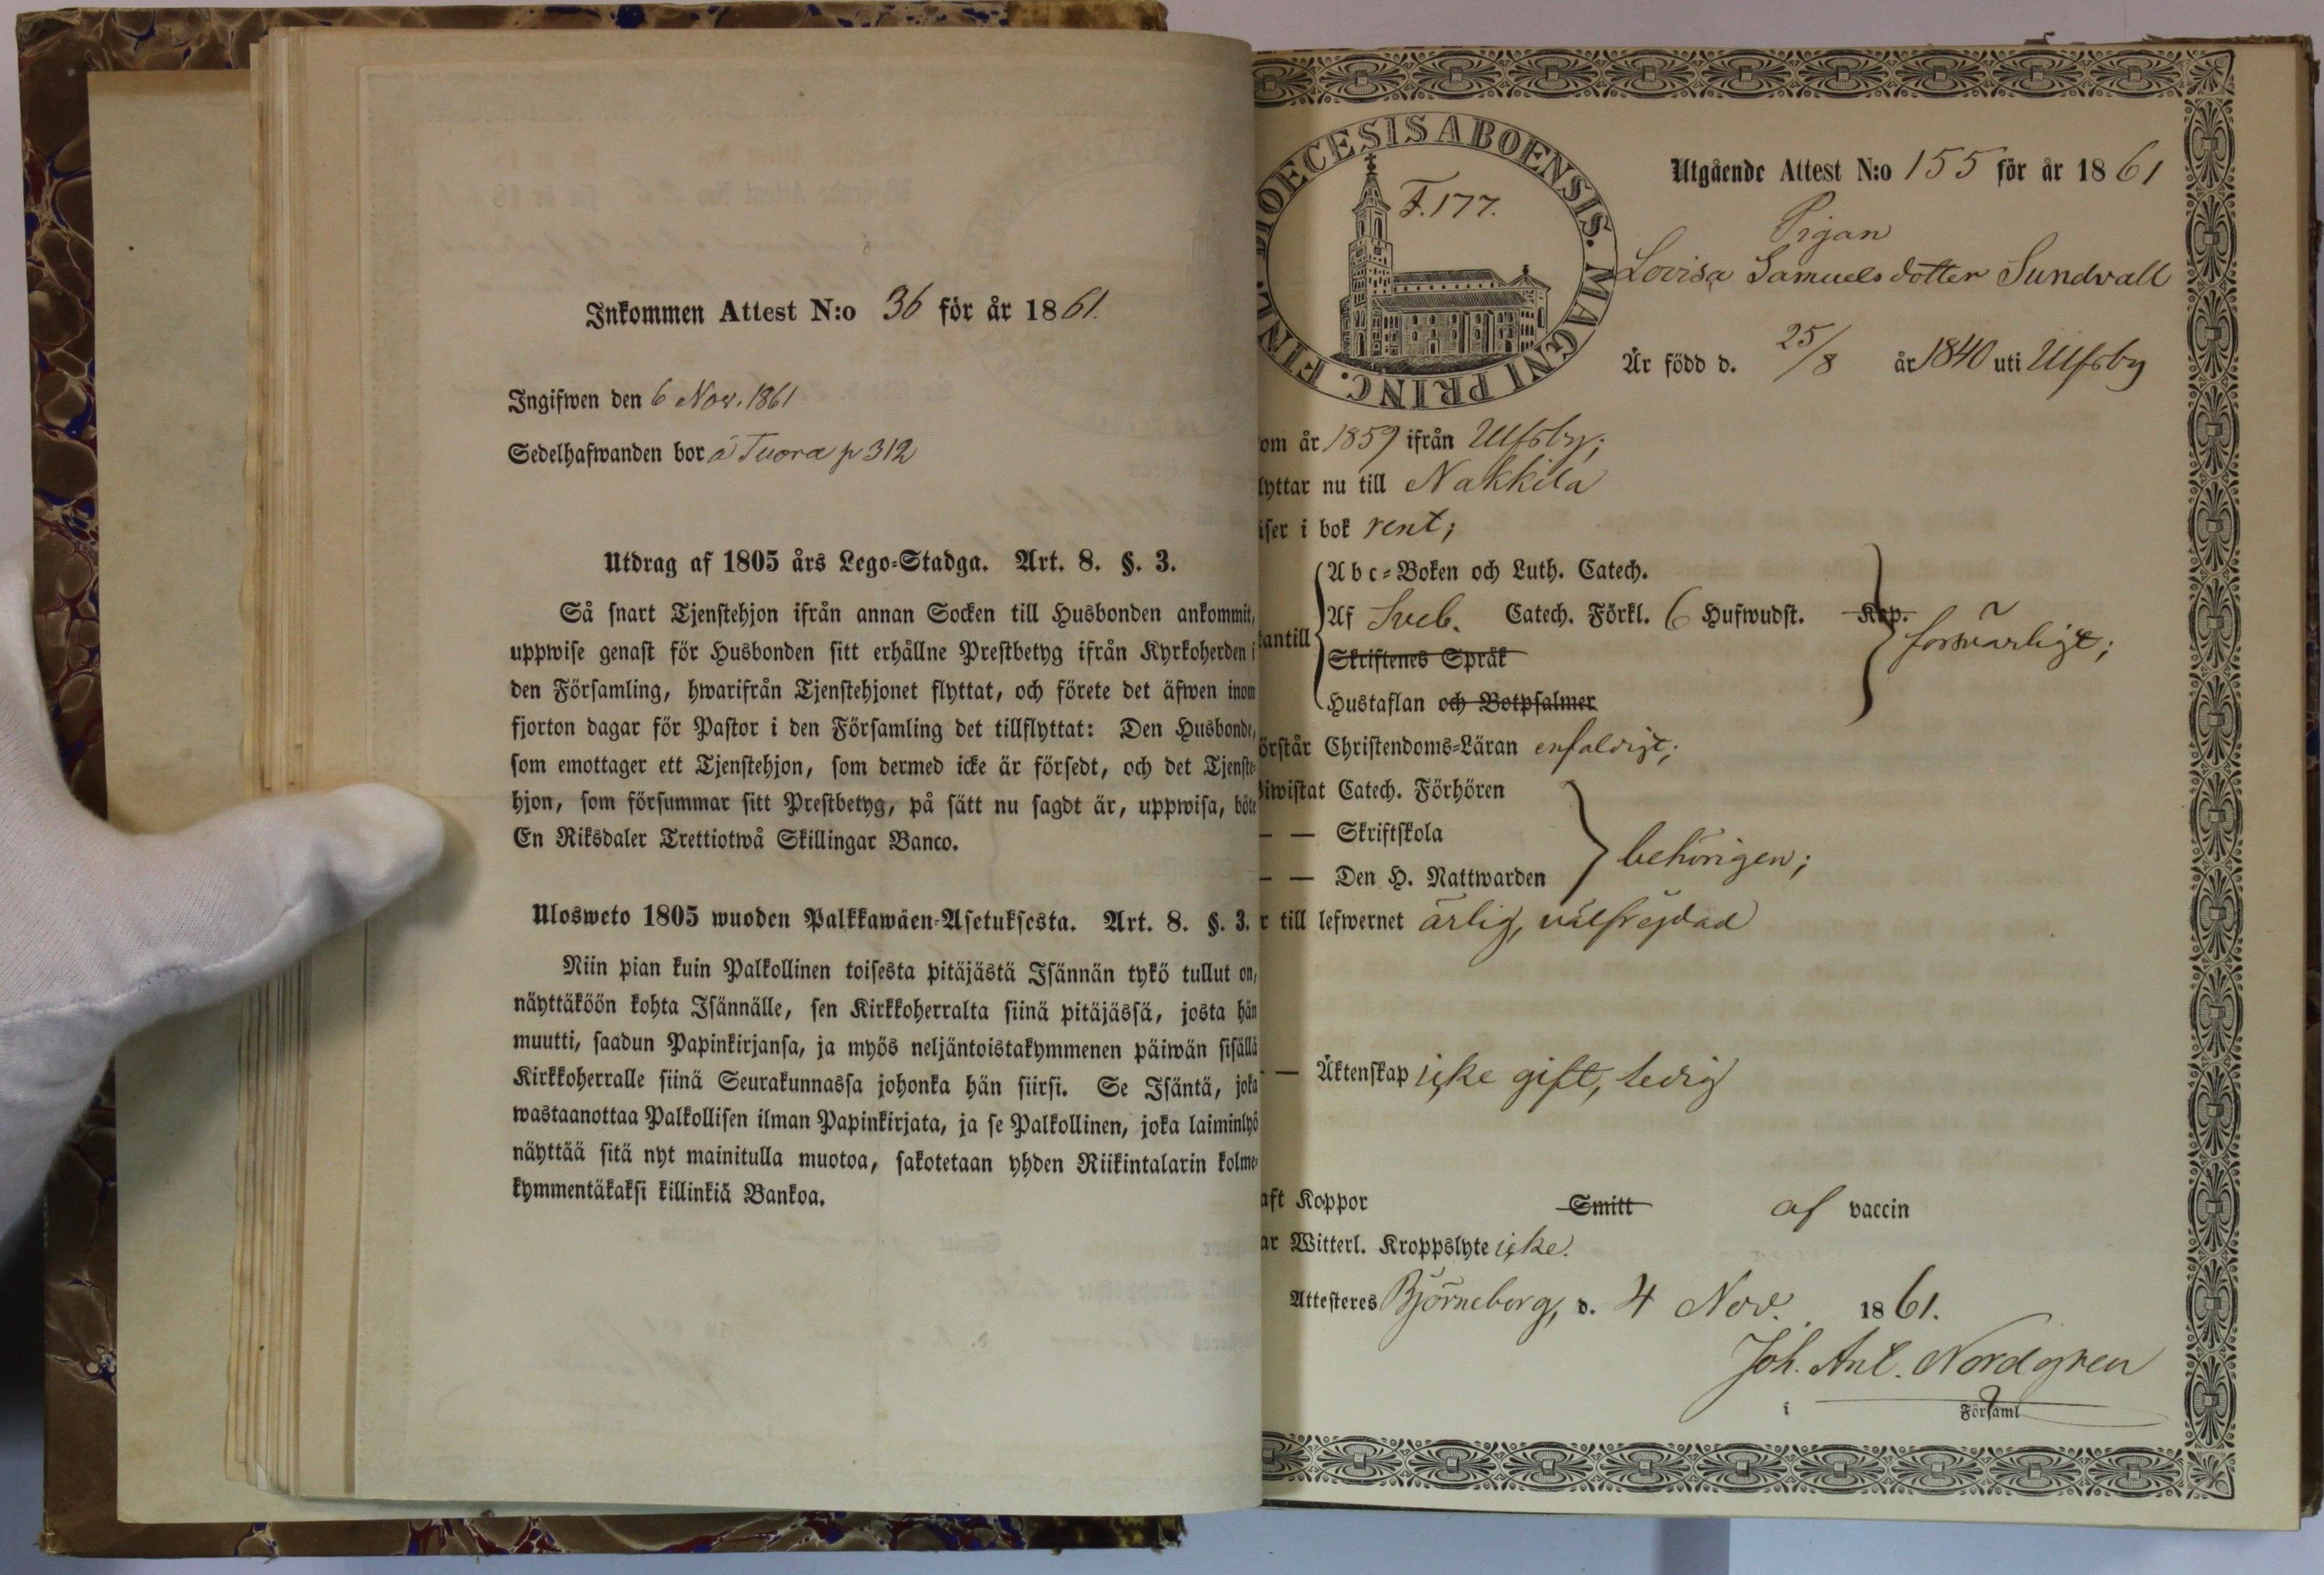 Inkommen Attest N:o 36 för år 1861.
Ingifwen den 6 Nov. 1861
Sedelhafwanden bor å Tuora p 312
Utdrag af 1805 års Lego-Stadga. Art. 8. §. 3.
Så snart Tjenstehjon ifrån annan Socken till Husbonden ankommit,
uppwise genast för Husbonden sitt erhållne Prestbetyg ifrån Kyrkoherden i
den Församling, hwarifrån Tjenstehjonet flyttat, och förete det äfwen inom
fjorton dagar för Pastor i den Församling det tillflyttat: Den Husbonde,
som emottager ett Tjenstehjon, som dermed icke är försedt, och det Tjenste-
hjon, som försummar sitt Prestbetyg, på sätt nu sagdt är, uppwisa, böte
En Riksdaler Trettiotwå Skillingar Banco.
Ulosweto 1805 wuoden Palkkawäen-Asetuksesta. Art. 8. §. 3.
Niin pian kuin Palkollinen toisesta pitäjästä Isännän tykö tullut on,
näyttäköön kohta Isännälle, sen Kirkkoherralta siinä pitäjässä, josta hän
muutti, saadun Papinkirjansa, ja myös neljäntoistakymmenen päiwän sisällä
Kirkkoherralle siinä Seurakunnassa johonka hän siirsi. Se Isäntä, joka
wastaanottaa Palkollisen ilman Papinkirjata, ja se Palkollinen, joka laiminlyö
näyttää sitä nyt mainitulla muotoa, sakotetaan yhden Riikintalarin kolme-
kymmentäkaksi killinkiä Bankoa.
DIOECESIS ABOENSIS. MAGNI PRINC. FINL.
F. 177.
Utgående Attest N:o 155 för år 1861
Pigan
Lovisa Samuelsdotter Sundvall
Är född d. 25/8 år 1840 uti Ulfsby
om år 1859 ifrån Ulfsby;
lyttar nu till Nakkila
iser i bok rent;
Abc-Boken och Luth. Catech.
Af Sveb. Catech. Förkl. 6 Hufwudst. Kap.
antill
försvarligt;
Skriftenes Språk
Hustaflan och Botpsalmer
örstår Christendoms-Läran enfaldigt;
iwistat Catech. Förhören
— — Skriftskola
behörigen;
— — Den H. Nattwarden
r till lefwernet ärlig, välfrejdad
— Äktenskap icke gift, ledig
aft Koppor Smitt af vaccin
ar Witterl. Kroppslyte icke.
Attesteres Björneborg, d. 4 Nov. 1861.
Joh. Ant. Nordgren
i Församl